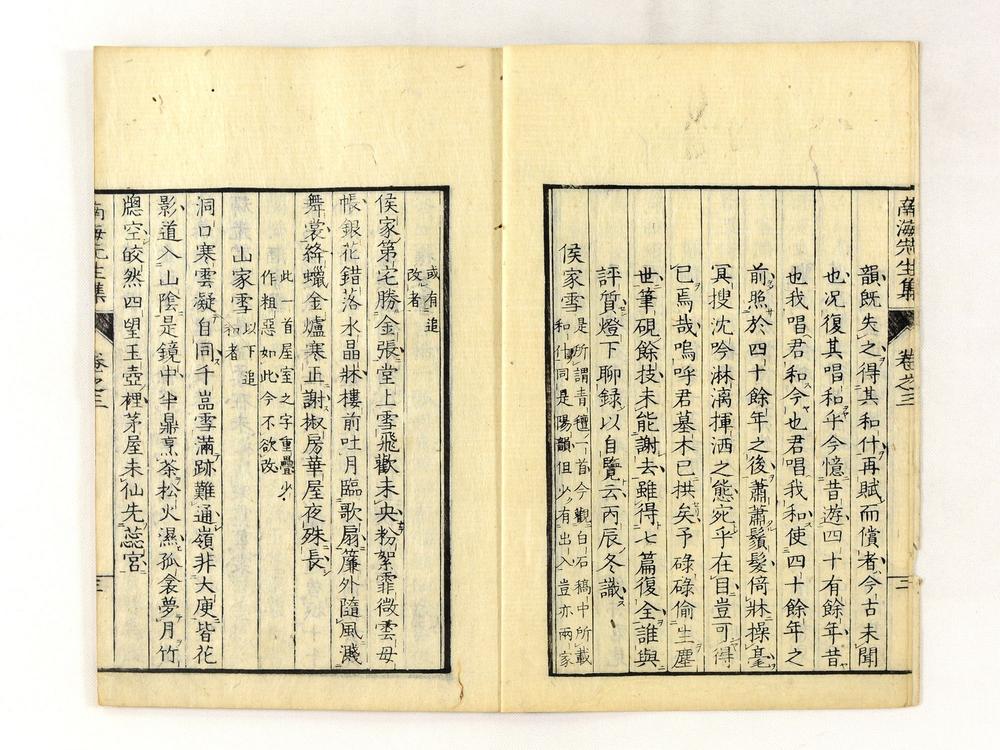 南海先生集
卷之三
三
韻既失之得其和什再賦而償者今古未聞
也况復其唱和乎今憶昔遊四十有餘年昔
也我唱君和今也君唱我和使四十餘年之
前照於四十餘年之後蕭蕭鬚髮倚牀操毫
冥搜沈吟淋漓揮洒之態宛乎在目豈可得
已焉哉嗚呼君墓木已拱矣予碌碌偷生塵
世筆硯餘技未能謝去雖得七篇復全誰與
評質燈下聊録以自覽云丙辰冬識
侯家雪
是所謂青氊一首今觀白石稿中所載
和什同是陽韻但少有出入豈亦兩家
或有追
改者
侯家第宅勝金張堂上雪飛歡未央粉絮霏微雲母
帳銀花錯落水晶牀樓前吐月臨歌扇簾外隨風濺
舞裳絳蠟金爐寒正謝椒房華屋夜殊長
此一首屋室之字重疊少
作粗惡如此今不欲改
山家雪
以下追
和者
洞口寒雲凝自同千嵓雪滿跡難通嶺非大庾皆花
影道入山陰是鏡中半鼎烹茶松火濕孤衾夢月竹
牕空皎然四望玉壺裡茅屋未仙先蕊宮
南海先生集
卷之三
三